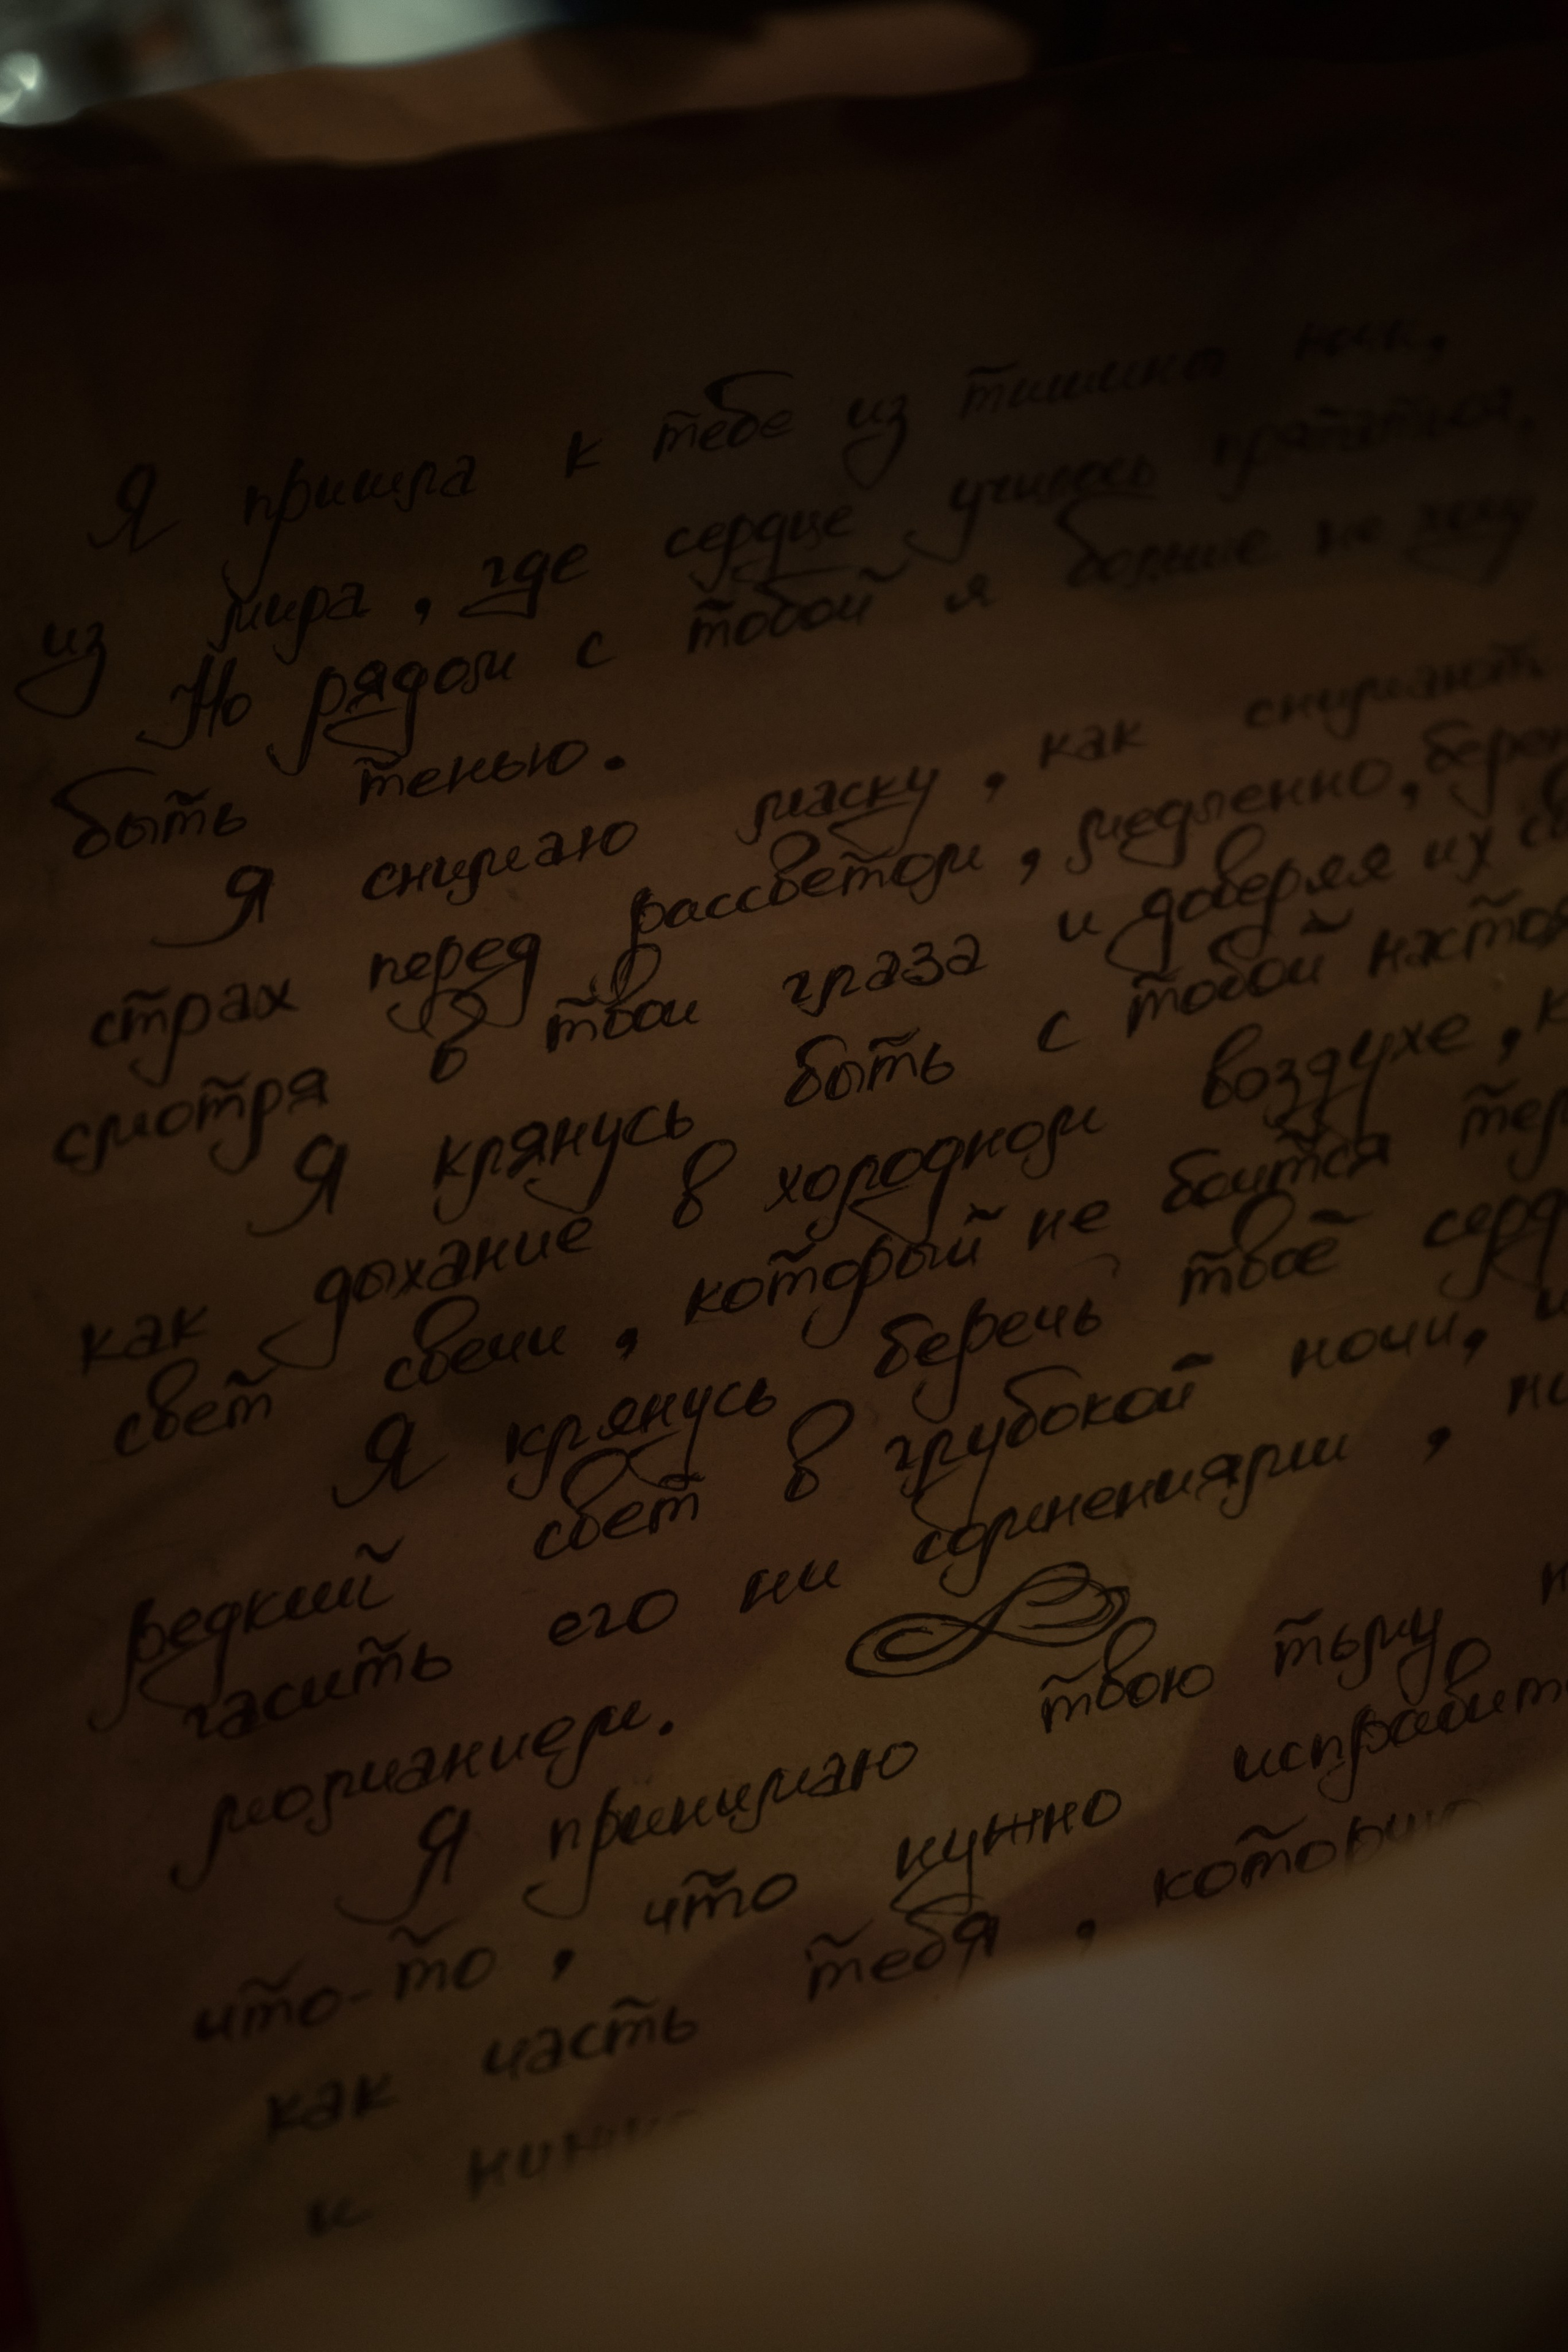 Я пришла к тебе из тишины
из мира, где сердце училось прятаться.
Но рядом с тобой я больше не хочу
быть тенью.
Я снимаю маску, как снимают
страх перед рассветом, медленно,
смотря в твои глаза и доверяя их
Я клянусь быть с тобой
как дыхание в холодном воздухе,
свет свечи, который не боится
Я клянусь беречь твоё
редкий свет в глубокой ночи,
гасить его ни сомнениями,
молчанием.
Я принимаю твою тьму
что-то, что нужно
как часть тебя,